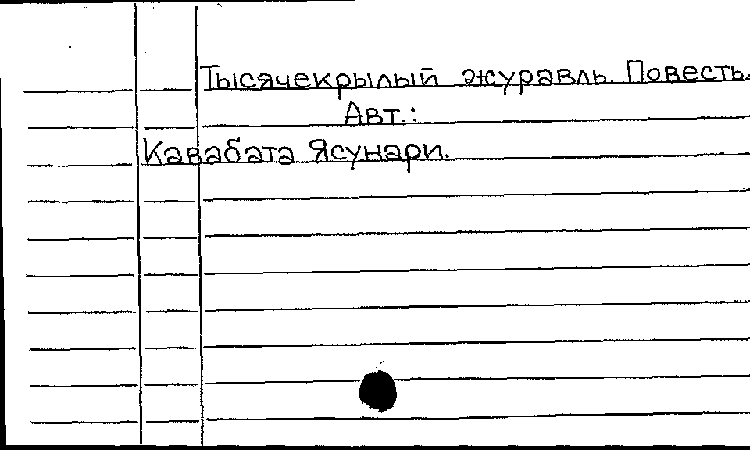 Тысячекрылый журавль. Повесть.
Авт.:
Кавабата Ясунари.